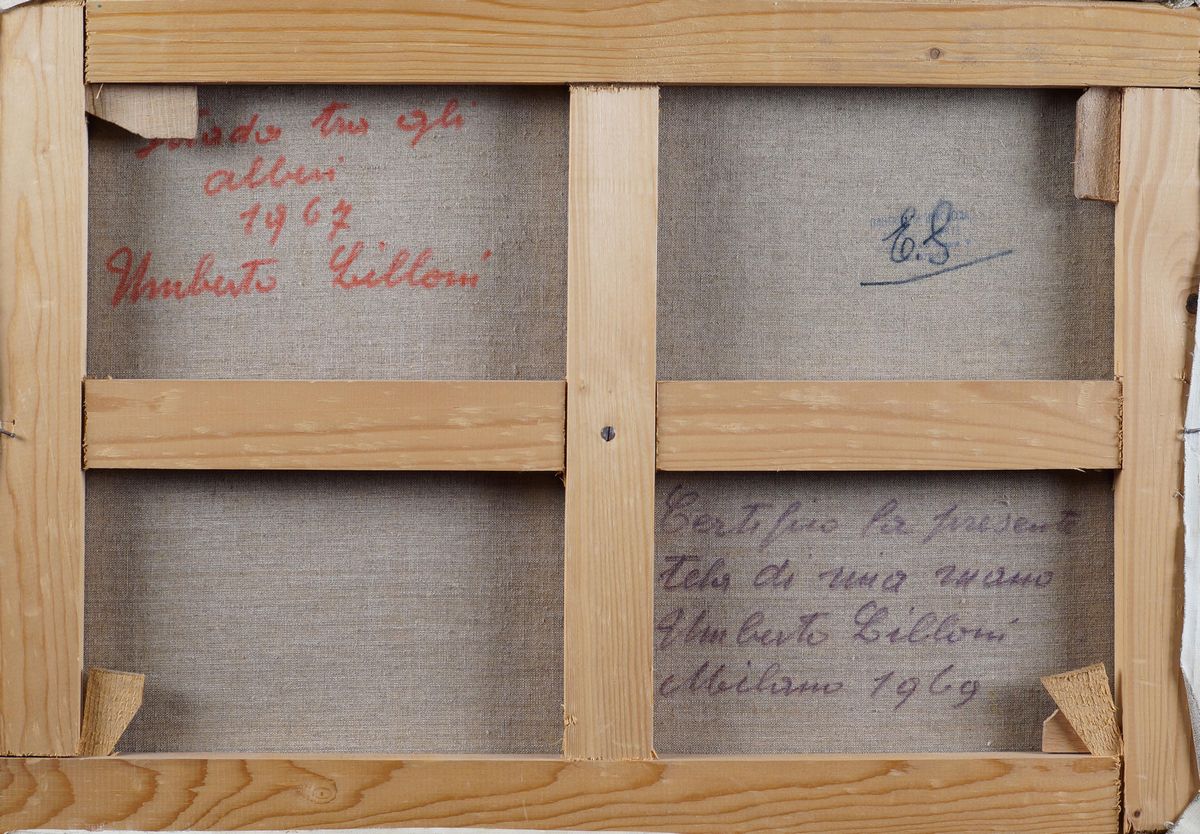 Strada tra gli
alberi
1967
Umberto Lilloni
E.S
Certifico la presente
tela di mia mano
Umberto Lilloni
Milano 1969